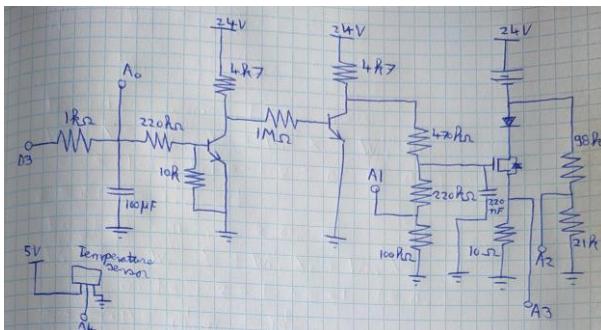 24V
24V
24V
A0
4k7
4k7
1kΩ
220kΩ
1MΩ
470kΩ
98k
D3
10k
A1
220kΩ
220
nF
100μF
100kΩ
10Ω
21k
A2
5V
Temperature
sensor
A3
A4